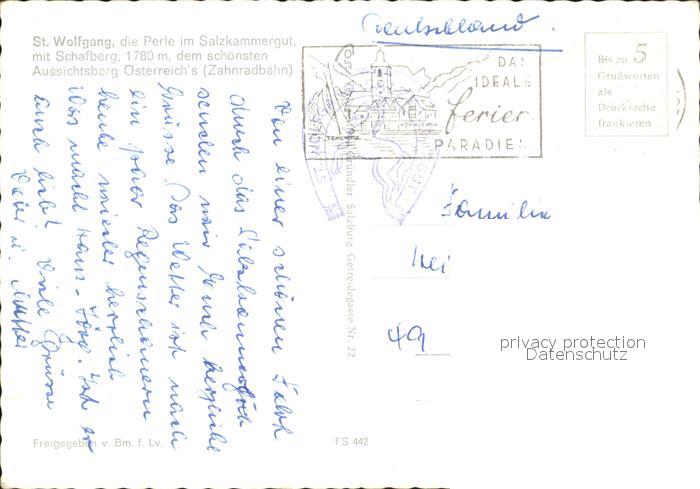 St. Wolfgang, die Perle im Salzkammergut,
mit Schafberg, 1780 m, dem schönsten
Aussichtsberg Österreich's (Zahnradbahn)
Von einer schönen Fahrt
durch das Salzkammergut
senden wir Euch herzliche
Grüsse. Das Wetter ist nach
ein paar Regenschauern
heute wieder herrlich.
Was macht Hans-Jörg. Hat er
Euch lieb? Viele Grüsse
Vater u. Mutter
Freigegeben v. Bm. f. Lv.
FS 442
Gründler Salzburg Getreidegasse Nr. 22
Deutschland
DAS
IDEALE
Ferien
PARADIES
Bis zu 5
Grußworten
als
Drucksache
frankieren
Familie
49
privacy protection
Datenschutz